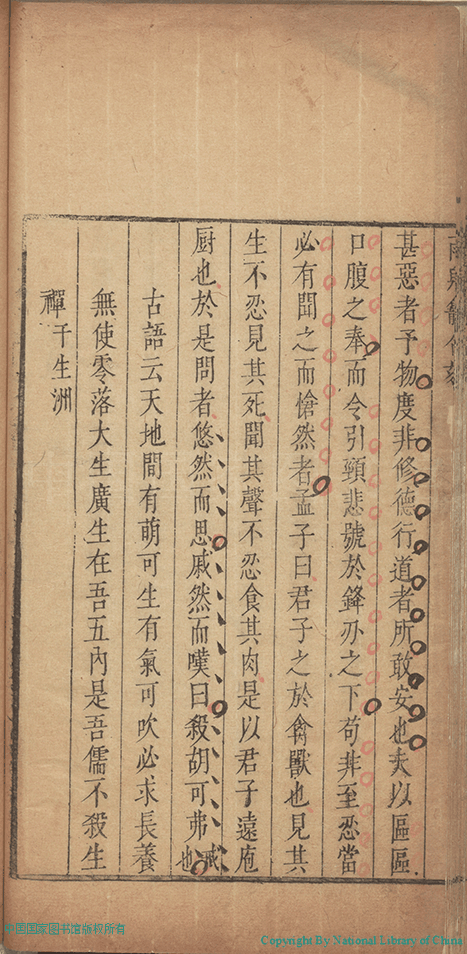 甚惡者予物度非修德行道者所敢安也夫以區區
口腹之奉而令引頸悲號於鋒刃之下苟非至忍當
必有聞之而愴然者孟子曰君子之於禽獸也見其
生不忍見其死聞其聲不忍食其肉是以君子遠庖
厨也於是問者悠然而思戚然而嘆曰殺胡可弗戒也
古語云天地間有萌可生有氣可吹必求長養
無使零落大生廣生在吾五內是吾儒不殺生
禪千生洲
中国国家图书馆版权所有
Copyright By National Library of China